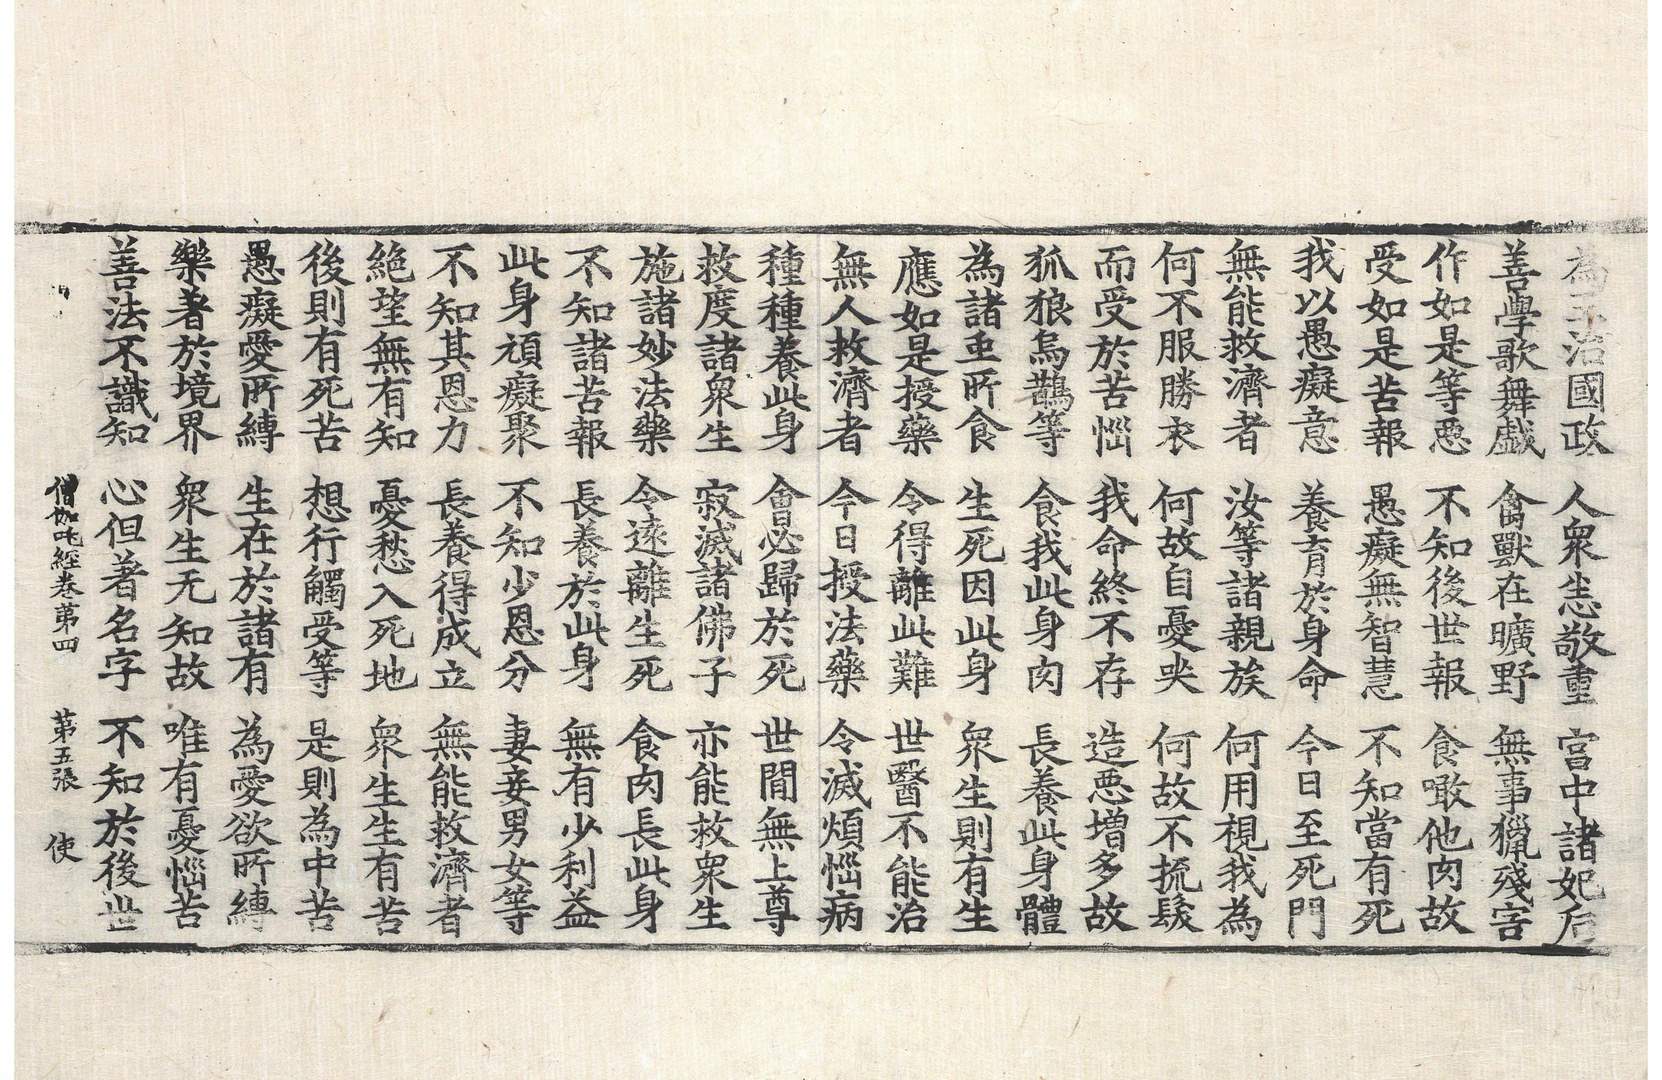 為王治國政 人衆恙敬重 宮中諸妃后
善學歌舞戲 禽獸在曠野 無事獵殘害
作如是等悪 不知後世報 食噉他肉故
受如是苦報 愚癡無智慧 不知當有死
我以愚癡意 養育於身命 今日至死門
無能救濟者 汝等諸親族 何用視我為
何不服勝衣 何故自憂㘞 何故不挽髮
而受於苦惱 我命終不存 造悪增多故
狐狼烏鵲等 食我此身肉 長養此身體
為諸虫所食 生死因此身 衆生則有生
應如是授藥 令得離此難 世醫不能治
無人救濟者 今日授法藥 令滅煩惱病
種種養此身 會必歸於死 世間無上尊
救度諸衆生 寂滅諸佛子 亦能救衆生
施諸妙法藥 令遠離生死 食肉長此身
不知諸苦報 長養於此身 無有少利益
此身頑癡聚 不知少恩分 妻妾男女等
不知其恩力 長養得成立 無能救濟者
絶望無有知 憂愁入死地 衆生生有苦
後則有死苦 想行觸受等 是則為中苦
愚癡愛所縛 生在於諸有 為愛欲所縛
樂著於境界 衆生无知故 唯有憂惱苦
善法不識知 心但著名字 不知於後世
僧伽吒經卷第四 第五張 使